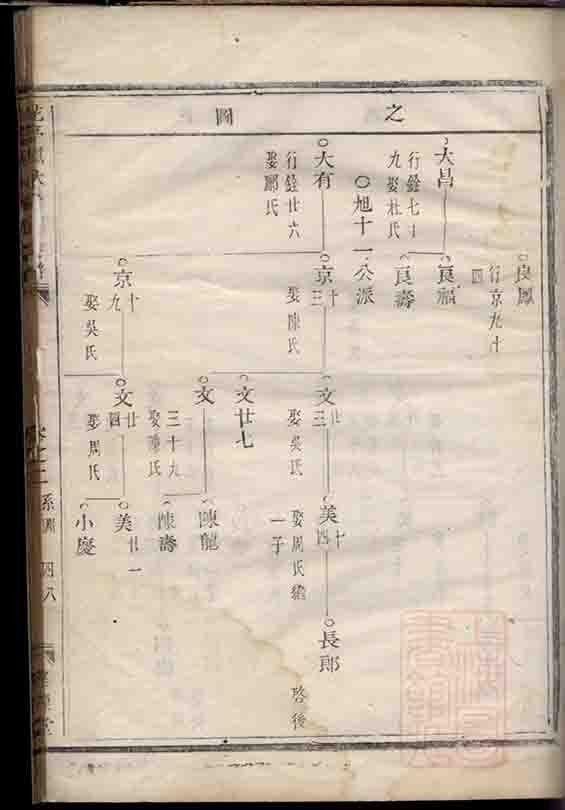 之圖
良鳳
行京九十
四
大昌
行銓七十
九娶杜氏
良福
良壽
旭十一公派
大有
行銓廿六
娶鄺氏
京十三
娶陳氏
京十九
娶吳氏
文廿三
娶吳氏
文廿七
文三十九
娶陳氏
文廿四
娶周氏
美四十
娶周氏
一子
陳龍
陳壽
美廿一
小慶
長郎
啓後
系圖
四八
堂